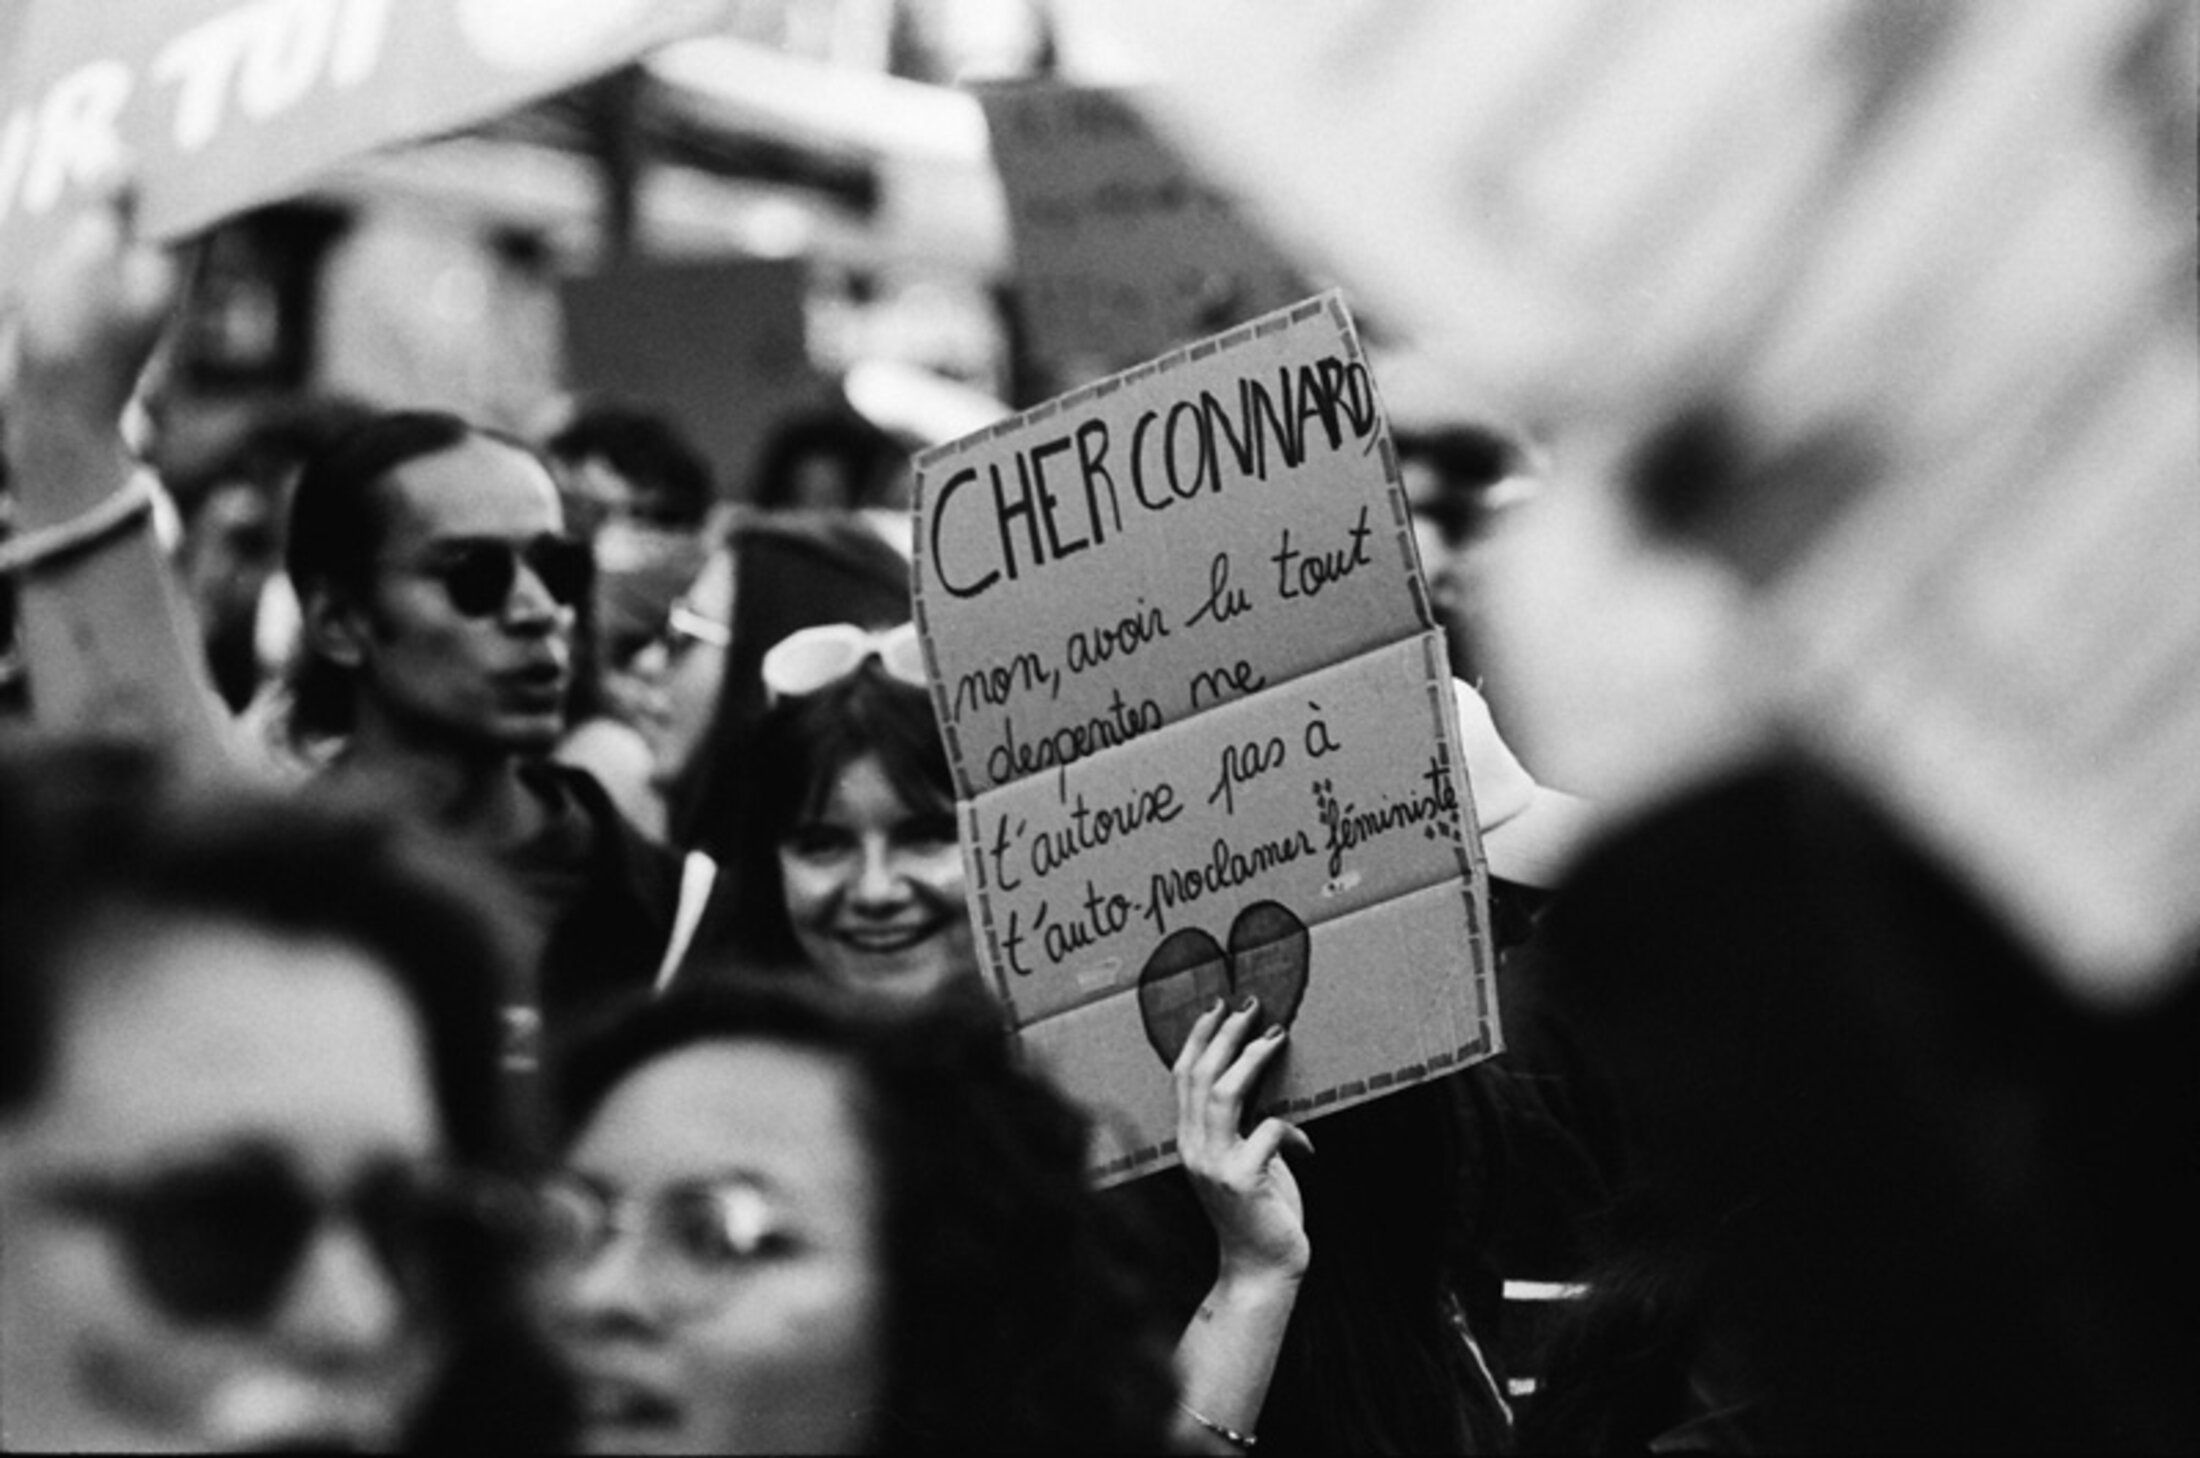 UR TOI
CHER CONNARD,
non, avoir lu tout
despentes ne
t'autorise pas à
t'auto-proclamer féministe